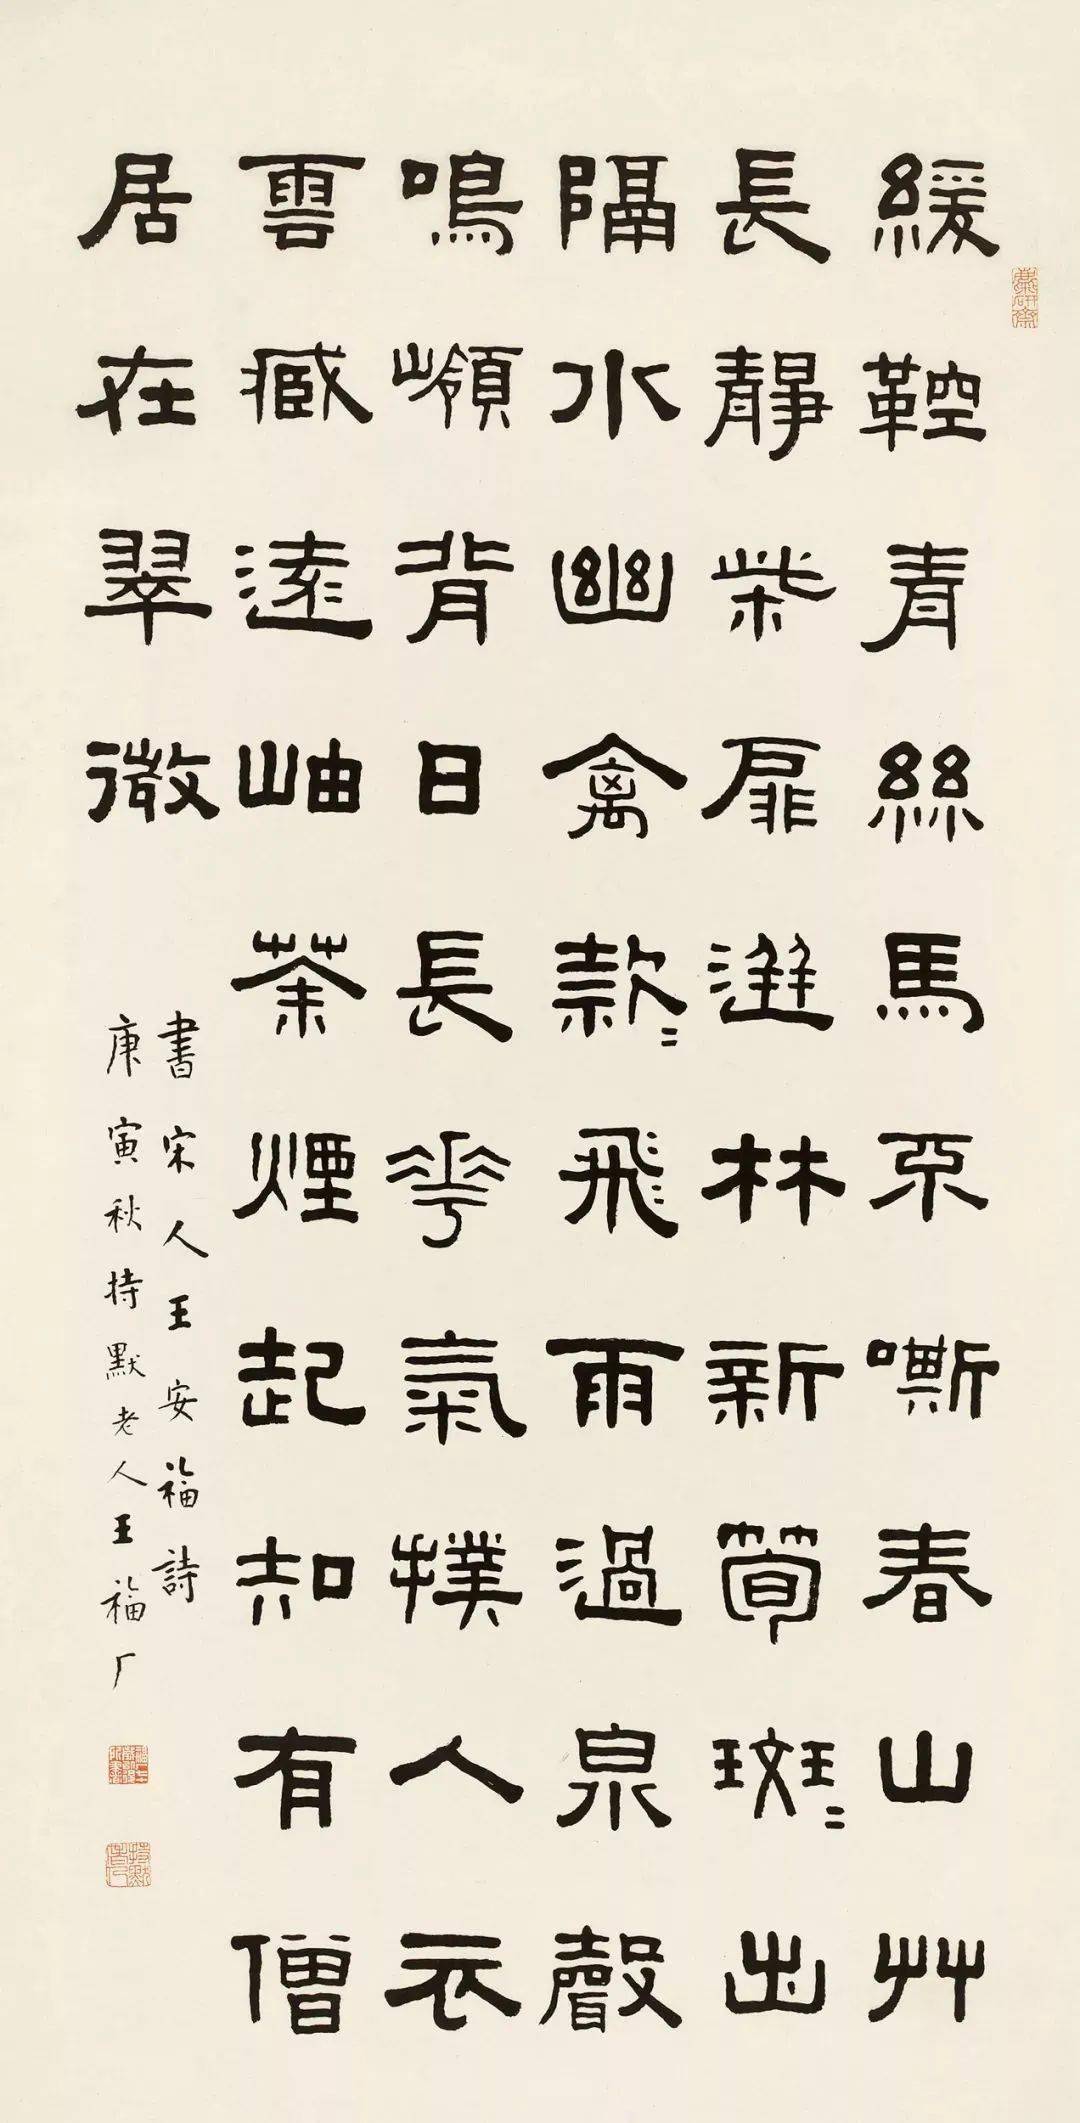 緩鞚青絲馬不嘶春山艸
長靜柴扉迸林新筍斑〻出
隔水幽禽款〻飛雨過泉聲
鳴嶺背日長華氣撲人衣
雲臧遠岫茶煙起知有僧
居在翠微
書宋人王安福詩
庚寅秋持默老人王福厂
麋研齋
持默老人